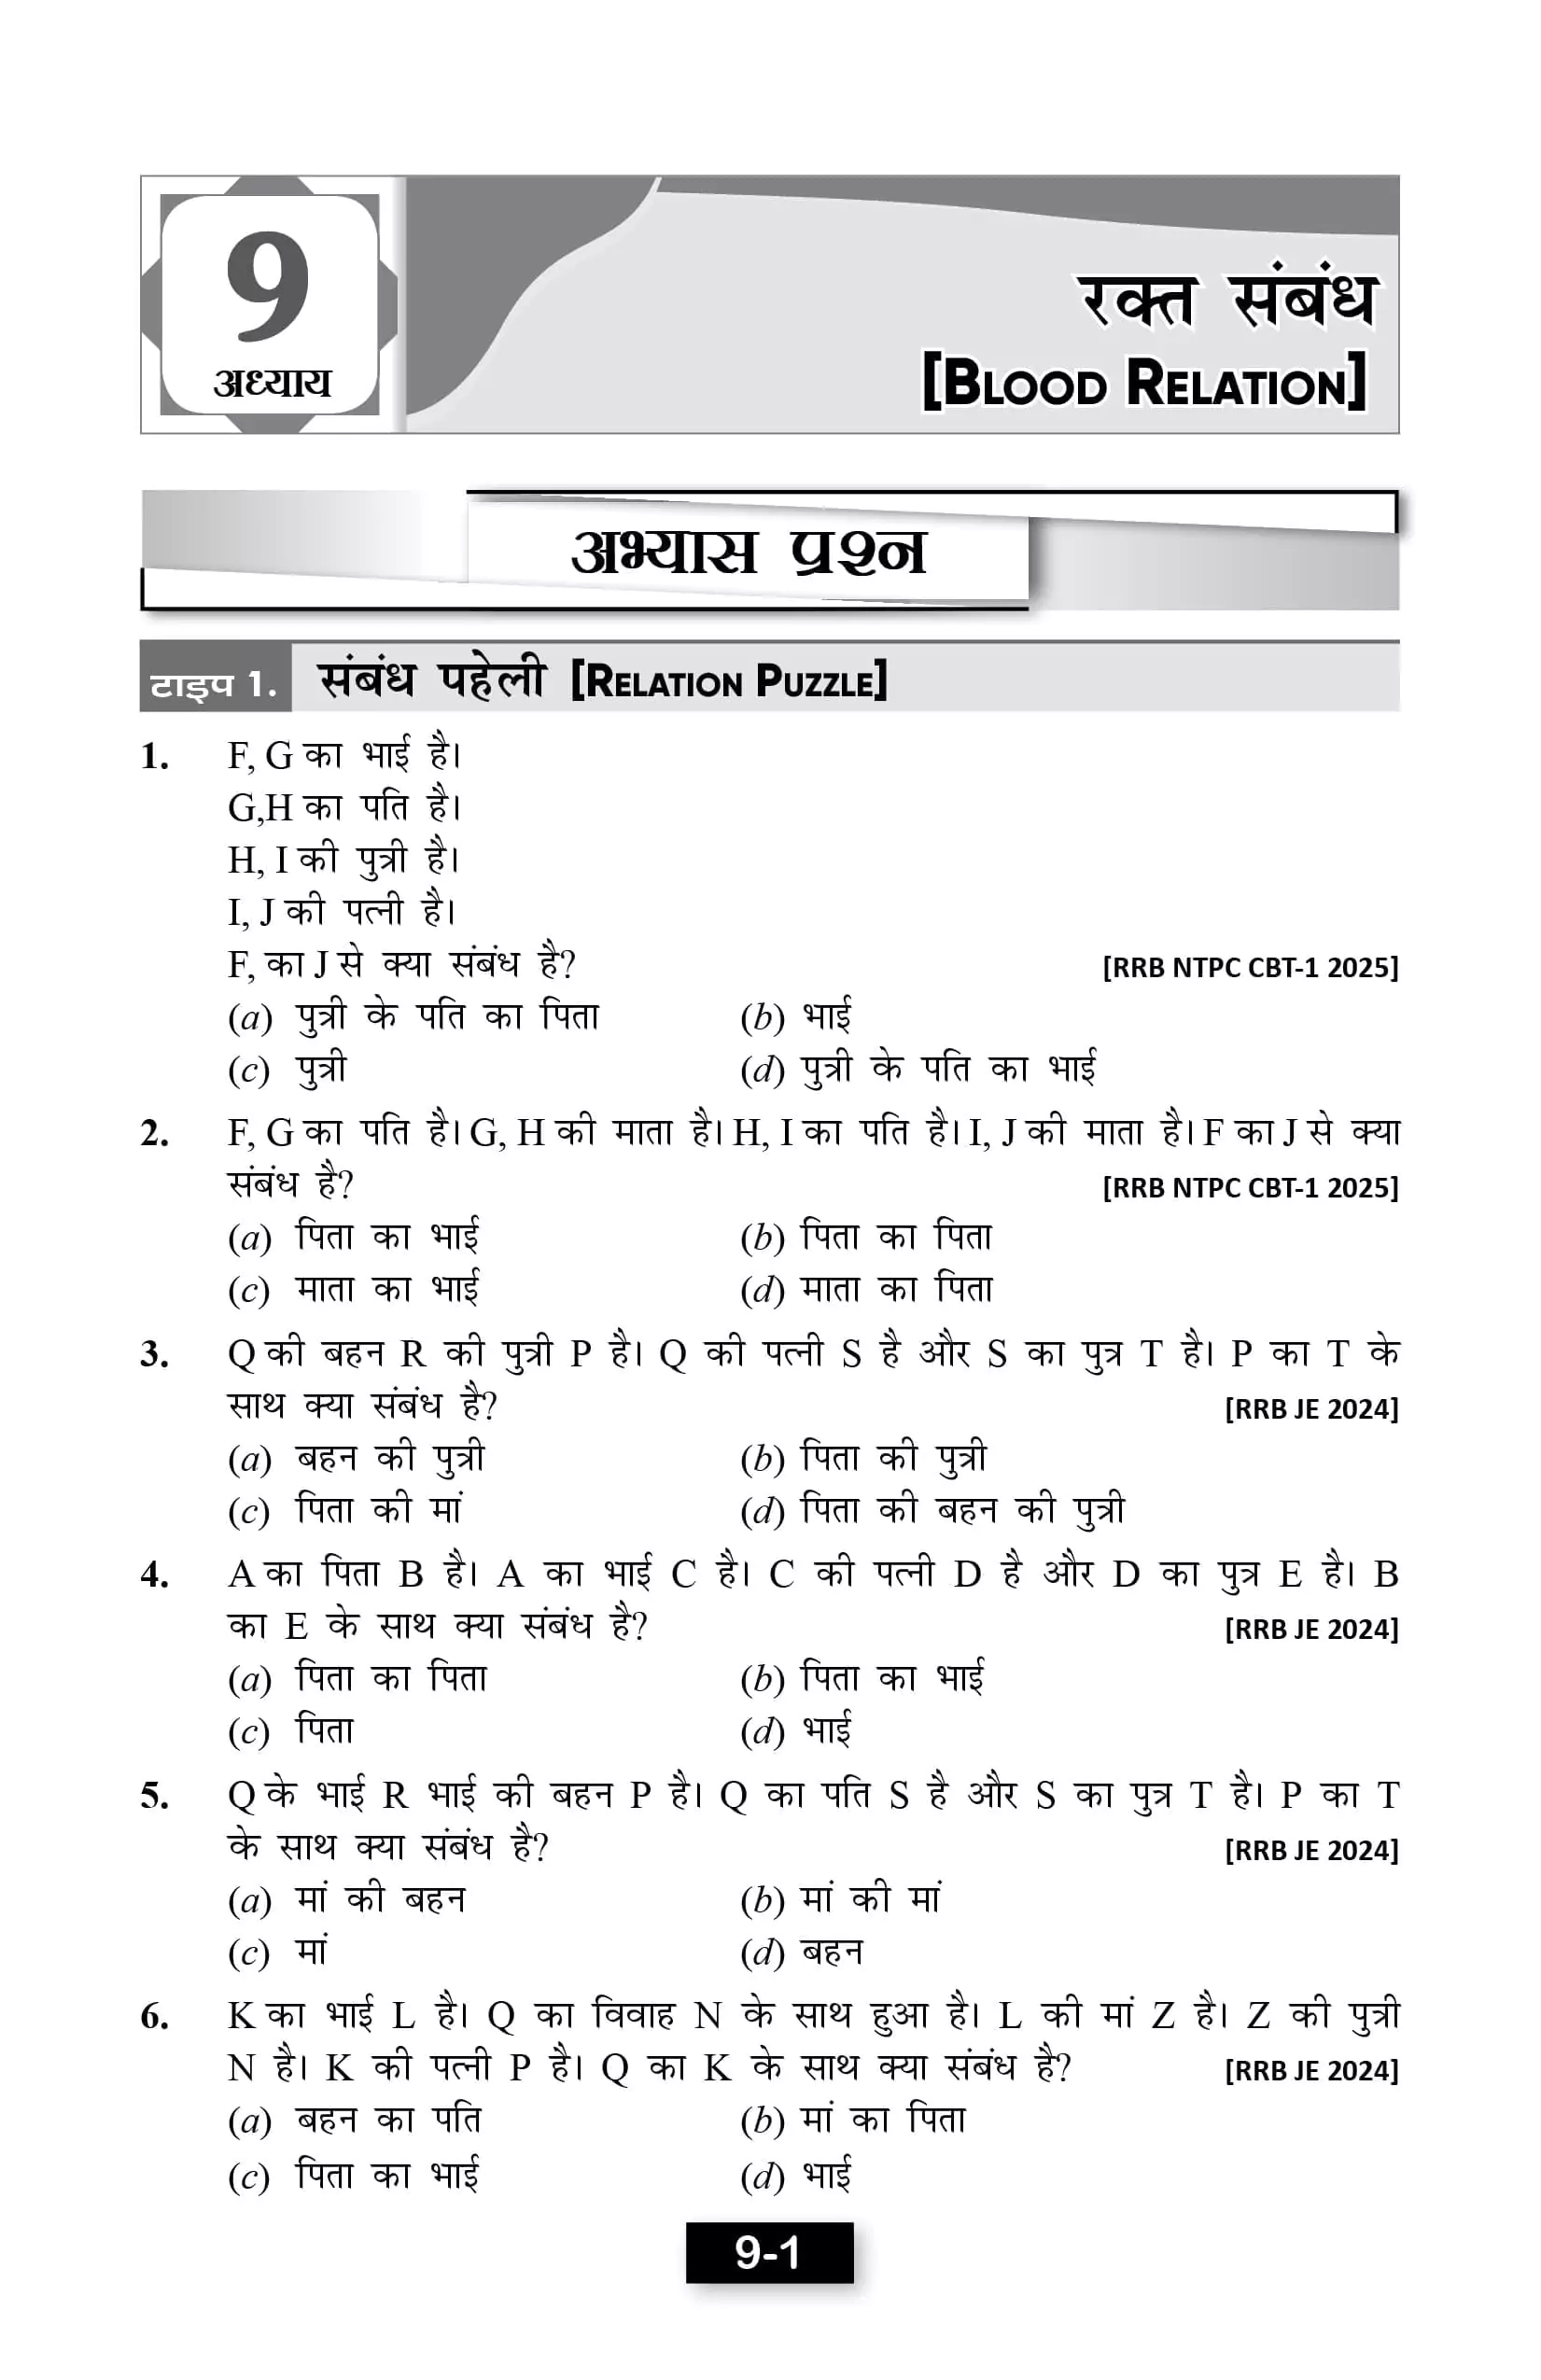 9
अध्याय
रक्त संबंध
[BLOOD RELATION]
अभ्यास प्रश्न
टाइप 1. संबंध पहेली [RELATION PUZZLE]
1. F, G का भाई है।
G,H का पति है।
H, I की पुत्री है।
I, J की पत्नी है।
F, का J से क्या संबंध है? [RRB NTPC CBT-1 2025]
(a) पुत्री के पति का पिता (b) भाई
(c) पुत्री (d) पुत्री के पति का भाई
2. F, G का पति है। G, H की माता है। H, I का पति है। I, J की माता है। F का J से क्या
संबंध है? [RRB NTPC CBT-1 2025]
(a) पिता का भाई (b) पिता का पिता
(c) माता का भाई (d) माता का पिता
3. Q की बहन R की पुत्री P है। Q की पत्नी S है और S का पुत्र T है। P का T के
साथ क्या संबंध है? [RRB JE 2024]
(a) बहन की पुत्री (b) पिता की पुत्री
(c) पिता की मां (d) पिता की बहन की पुत्री
4. A का पिता B है। A का भाई C है। C की पत्नी D है और D का पुत्र E है। B
का E के साथ क्या संबंध है? [RRB JE 2024]
(a) पिता का पिता (b) पिता का भाई
(c) पिता (d) भाई
5. Q के भाई R भाई की बहन P है। Q का पति S है और S का पुत्र T है। P का T
के साथ क्या संबंध है? [RRB JE 2024]
(a) मां की बहन (b) मां की मां
(c) मां (d) बहन
6. K का भाई L है। Q का विवाह N के साथ हुआ है। L की मां Z है। Z की पुत्री
N है। K की पत्नी P है। Q का K के साथ क्या संबंध है? [RRB JE 2024]
(a) बहन का पति (b) मां का पिता
(c) पिता का भाई (d) भाई
9-1